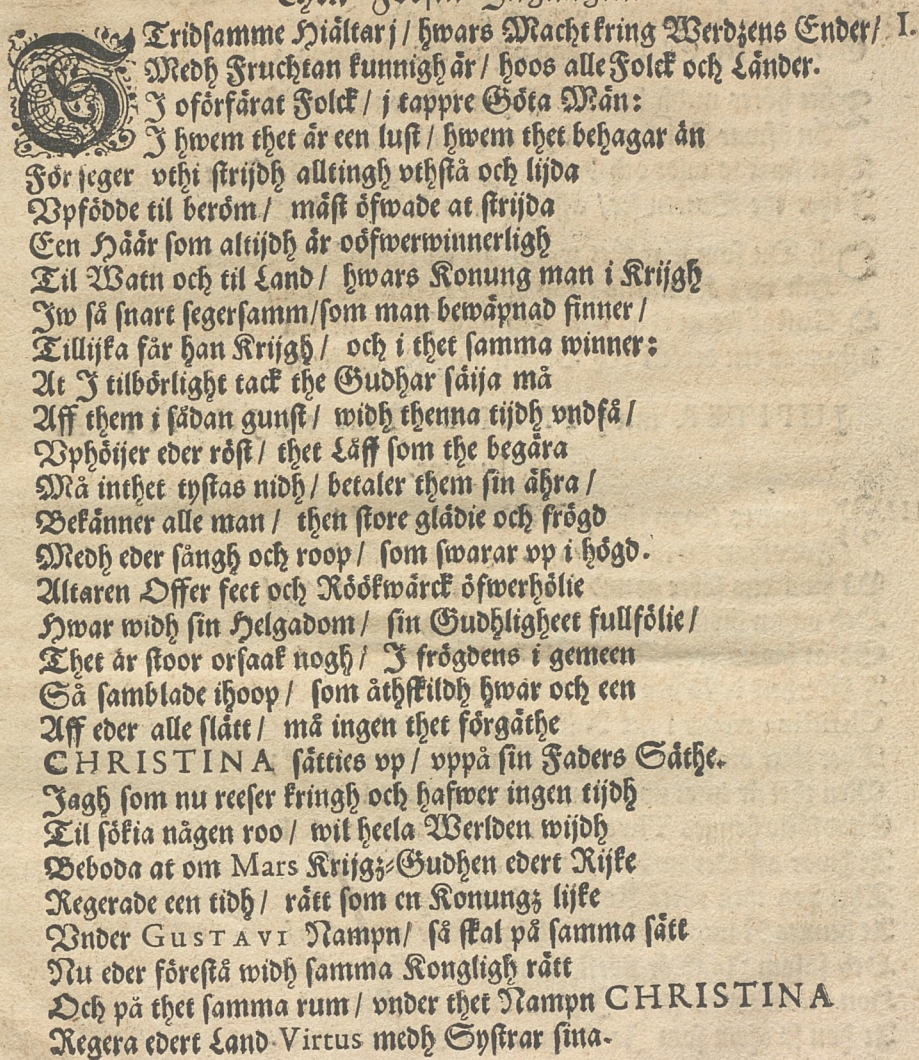 STridsamme Hiältar j / hwars Macht kring Werdzens Ender / I.
Medh Fruchtan kunnigh är / hoos alle Folck och Länder.
I oförfärat Folck / j tappre Göta Män:
I hwem thet är een lust / hwem thet behagar än
För seger vthi strijdh alltingh vthstå och lijda
Vpfödde til beröm / mäst öfwade at strijda
Een Häär som altijdh är oöfwerwinnerligh
Til Watn och til Land / hwars Konung man i Krijgh
Jw så snart segersamm/som man bewäpnad finner /
Tillijka får han Krijgh / och i thet samma winner:
At I tilbörlight tack the Gudhar säija må
Aff them i sådan gunst / widh thenna tijdh vndfå /
Vphöijer eder röst / thet Låff som the begära
Må inthet tystas nidh / betaler them sin ähra /
Bekänner alle man / then store glädie och frögd
Medh eder sångh och roop / som swarar vp i högd.
Altaren Offer feet och Röökwärck öfwerhölie
Hwar widh sin Helgadom / sin Gudhligheet fullfölie /
Thet är stoor orsaak nogh / I frögdens i gemeen
Så samblade ihoop / som åthskildh hwar och een
Aff eder alle slätt / må ingen thet förgäthe
CHRISTINA sätties vp / vppå sin Faders Säthe.
Jagh som nu reeser kringh och hafwer ingen tijdh
Til sökia någen roo / wil heela Werlden wijdh
Beboda at om Mars Krijgz-Gudhen edert Rijke
Regerade een tidh / rätt som en Konungz lijke
Vnder GUSTAVI Nampn / så skal på samma sätt
Nu eder förestå widh samma Kongligh rätt
Och på thet samma rum / vnder thet Nampn CHRISTINA
Regera edert Land Virtus medh Systrar sina.